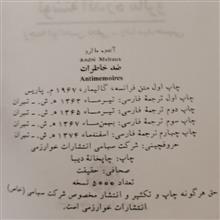 آندره مالرو
André Malraux
ضد خاطرات
Antimemoires
چاپ اول متن فرانسه، گالیمار، ۱۹۶۷ م. پاریس
چاپ اول ترجمهٔ فارسی: تیرماه ۱۳۶۳ ه. ش. ـ تهران
چاپ دوم ترجمهٔ فارسی: تیرماه ۱۳۶۵ ه. ش. ـ تهران
چاپ سوم ترجمهٔ فارسی: بهمن‌ماه ۱۳۶۷ ه. ش. ـ تهران
چاپ چهارم ترجمهٔ فارسی: اسفندماه ۱۳۷۴ ه. ش. ـ تهران
حروفچینی: شرکت سهامی انتشارات خوارزمی
چاپ: چاپخانهٔ دیبا
صحافی: حقیقت
تعداد ۵۰۰۰ نسخه
حق هرگونه چاپ و تکثیر و انتشار مخصوص شرکت سهامی (خاص)
انتشارات خوارزمی است.